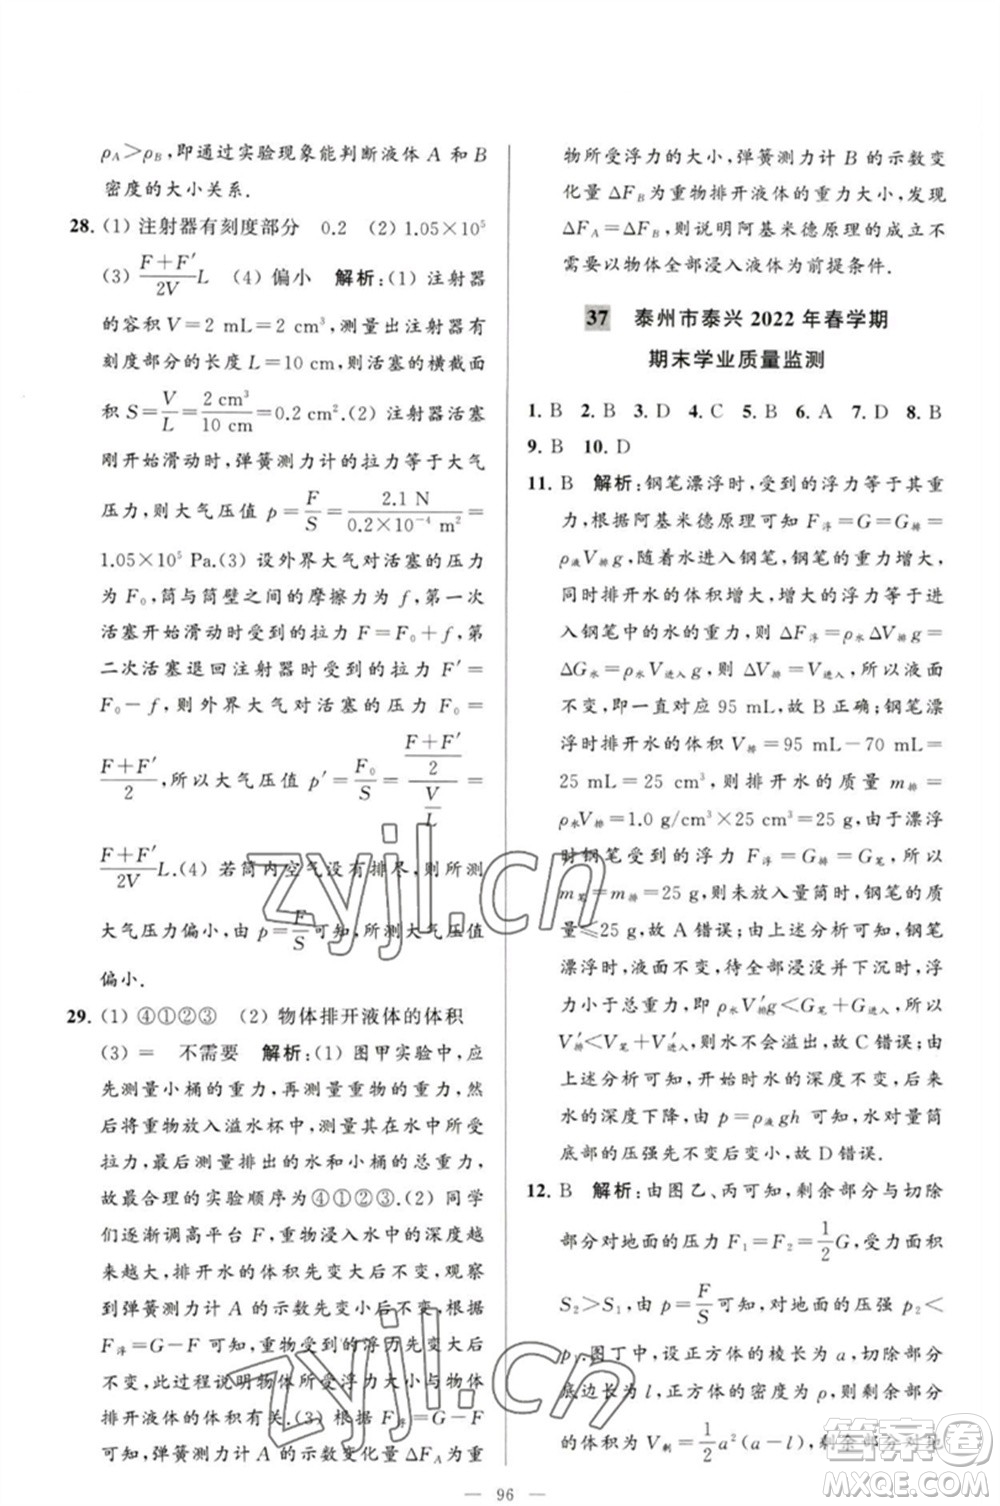 ρA>ρB,即通过实验现象能判断液体 A 和 B
密度的大小关系.
28. (1) 注射器有刻度部分 0.2 (2) 1.05×10⁵
(3) (F+F′)/2V L (4) 偏小 解析:(1) 注射器
的容积 V=2 mL=2 cm³,测量出注射器有
刻度部分的长度 L=10 cm,则活塞的横截面
积 S=V/L=2 cm³/10 cm=0.2 cm².(2) 注射器活塞
刚开始滑动时,弹簧测力计的拉力等于大气
压力,则大气压值 p=F/S=2.1 N/(0.2×10⁻⁴ m²)=
1.05×10⁵ Pa.(3) 设外界大气对活塞的压力
为 F₀,筒与筒壁之间的摩擦力为 f,第一次
活塞开始滑动时受到的拉力 F=F₀+f,第
二次活塞退回注射器时受到的拉力 F′=
F₀-f,则外界大气对活塞的压力 F₀=
(F+F′)/2,所以大气压值 p′=F₀/S=((F+F′)/2)/(V/L)=
(F+F′)/2V L.(4) 若筒内空气没有排尽,则所测
大气压力偏小,由 p=F/S可知,所测大气压值
偏小.
29. (1) ④①②③ (2) 物体排开液体的体积
(3) = 不需要 解析:(1) 图甲实验中,应
先测量小桶的重力,再测量重物的重力,然后
将重物放入溢水杯中,测量其在水中所受拉
力,最后测量排出的水和小桶的总重力,
故最合理的实验顺序为④①②③.(2) 同学
们逐渐调高平台 F,重物浸入水中的深度越
来越大,排开水的体积先变大后不变,观察
到弹簧测力计 A 的示数先变小后不变,根据
F浮=G-F 可知,重物受到的浮力先变大后
不变,此过程说明物体所受浮力大小与物体
排开液体的体积有关.(3) 根据 F浮=G-F
可知,弹簧测力计 A 的示数变化量 ΔFA为重
物所受浮力的大小,弹簧测力计 B 的示数变
化量 ΔFB为重物排开液体的重力大小,发现
ΔFA=ΔFB,所以说明阿基米德原理的成立不
需要以物体全部浸入液体为前提条件.
37 泰州市泰兴 2022 年春学期
期末学业质量监测
1. B 2. B 3. D 4. C 5. B 6. A 7. D 8. B
9. B 10. D
11. B 解析:钢笔漂浮时,受到的浮力等于其重
力,根据阿基米德原理可知 F浮=G=G排=
ρ液V排g,随着水进入钢笔,钢笔的重力增大,
同时排开水的体积增大,增大的浮力等于进
入钢笔中的水的重力,则 ΔF浮=ρ水ΔV排g=
ΔG水=ρ水V进入g,则 ΔV排=V进入,所以液面
不变,即一直对应 95 mL,故 B 正确;钢笔漂
浮时排开水的体积 V排=95 mL-70 mL=
25 mL=25 cm³,则排开水的质量 m排=
ρ水V排=1.0 g/cm³×25 cm³=25 g,由于漂浮
时钢笔受到的浮力 F浮=G排=G笔,所以
m笔=m排=25 g,则未放入量筒时,钢笔的质
量≤25 g,故 A 错误;由上分析可知,钢笔
漂浮时,液面不变,待全部浸没并下沉时,浮
力小于总重力,即 ρ水V′排g<G笔+G进入,所
以 V′排<V笔+V进入,则水不会溢出,故 C 错误;由
上述分析可知,开始时水的深度不变,后来水
的深度下降,由 p=ρ液gh 可知,水对量筒
底部的压强先不变后变小,故 D 错误.
12. B 解析:由图乙、丙可知,剩余部分与切除
部分对地面的压力 F₁=F₂=1/2G,受力面积
S₂>S₁,由 p=F/S可知,对地面的压强 p₂<
p₁.图丁中,设正方体的棱长为 a,切除部分
底边长为 l,正方体的密度为 ρ,则剩余部分
的体积为 V剩=1/2a²(a-l),剩余部分对地
— 96 —
zyjl.cn
zyjl.cn
答案卷
MXQE.COM